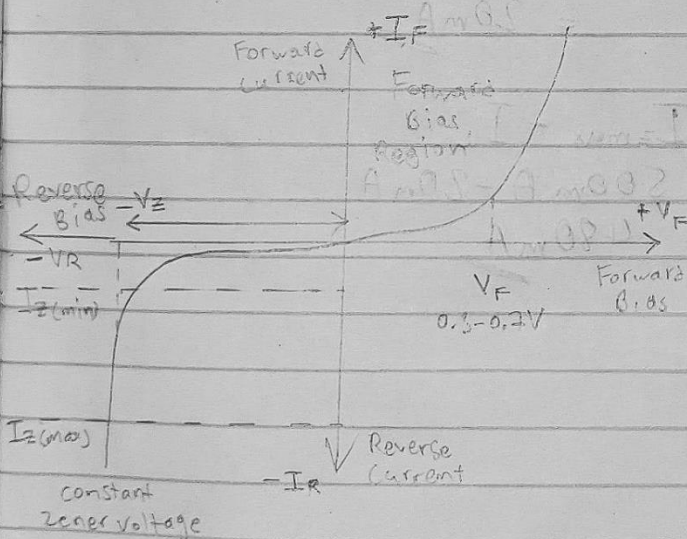 +I_F
Forward
Current
Forward
Bias
Region
Reverse
Bias
-V_Z
+V_F
-VR
V_F
0.3-0.7V
Forward
Bias
I_Z(min)
I_Z(max)
Reverse
Current
-I_R
constant
Zener voltage